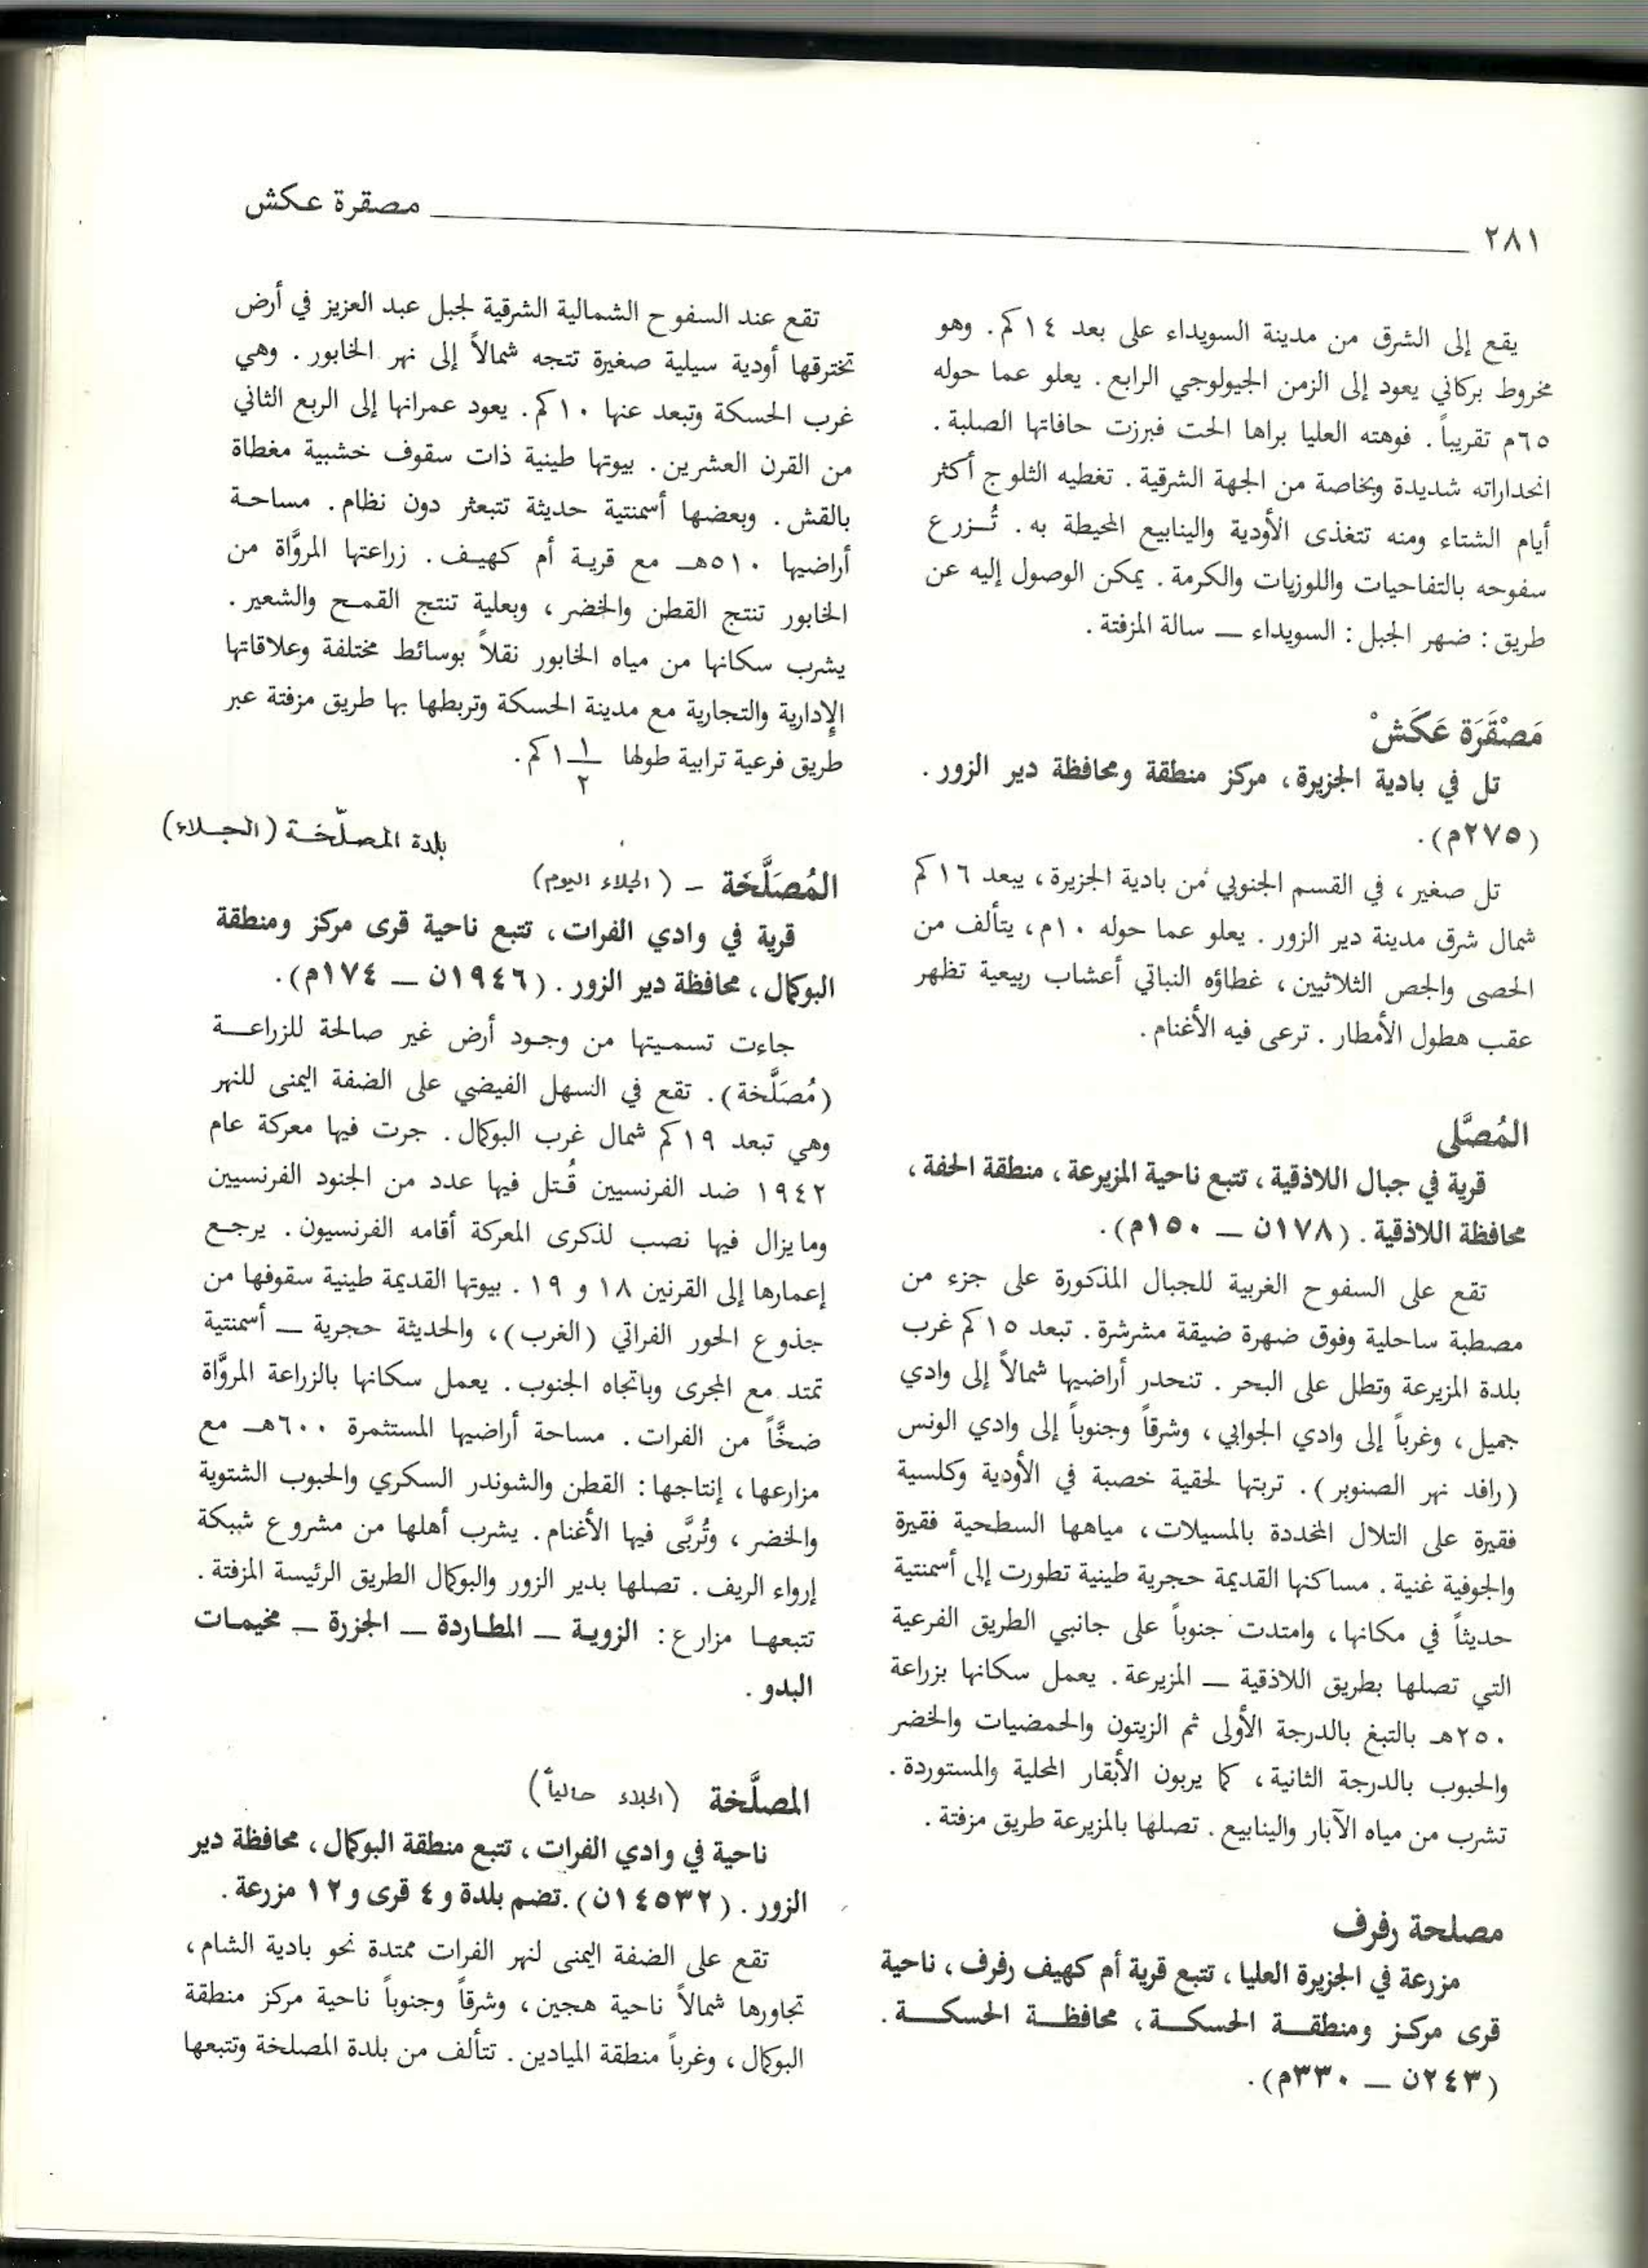 مصقرة عكش
٢٨١
يقع إلى الشرق من مدينة السويداء على بعد ١٤ كم. وهو
مخروط بركاني يعود إلى الزمن الجيولوجي الرابع. يعلو عما حوله
٦٥م تقريباً. فوهته العليا براها الحت فبرزت حافاتها الصلبة.
انحداراته شديدة وبخاصة من الجهة الشرقية. تغطيه الثلوج أكثر
أيام الشتاء ومنه تتغذى الأودية والينابيع المحيطة به. تُـزرع
سفوحه بالتفاحيات واللوزيات والكرمة. يمكن الوصول إليه عن
طريق: ضهر الجبل: السويداء ــ سالة المزفتة.
مَصْقَرَة عَكَشْ
تل في بادية الجزيرة، مركز منطقة ومحافظة دير الزور.
(٢٧٥م).
تل صغير، في القسم الجنوبي من بادية الجزيرة، يبعد ١٦ كم
شمال شرق مدينة دير الزور. يعلو عما حوله ١٠م، يتألف من
الحصى والجص الثلاثيين، غطاؤه النباتي أعشاب ربيعية تظهر
عقب هطول الأمطار. ترعى فيه الأغنام.
المُصَّلى
قرية في جبال اللاذقية، تتبع ناحية المزيرعة، منطقة الحفة،
محافظة اللاذقية. (١٧٨ن ــ ١٥٠م).
تقع على السفوح الغربية للجبال المذكورة على جزء من
مصطبة ساحلية وفوق ضهرة ضيقة مشرشرة. تبعد ١٥ كم غرب
بلدة المزيرعة وتطل على البحر. تنحدر أراضيها شمالاً إلى وادي
جميل، وغرباً إلى وادي الجوابي، وشرقاً وجنوباً إلى وادي الونس
(رافد نهر الصنوبر). تربتها لحقية خصبة في الأودية وكلسية
فقيرة على التلال المخددة بالمسيلات، مياهها السطحية فقيرة
والجوفية غنية. مساكنها القديمة حجرية طينية تطورت إلى أسمنتية
حديثاً في مكانها، وامتدت جنوباً على جانبي الطريق الفرعية
التي تصلها بطريق اللاذقية ــ المزيرعة. يعمل سكانها بزراعة
٢٥٠هـ بالتبغ بالدرجة الأولى ثم الزيتون والحمضيات والخضر
والحبوب بالدرجة الثانية، كما يربون الأبقار المحلية والمستوردة.
تشرب من مياه الآبار والينابيع. تصلها بالمزيرعة طريق مزفتة.
مصلحة رفرف
مزرعة في الجزيرة العليا، تتبع قرية أم كهيف رفرف، ناحية
قرى مركز ومنطقـة الحسكـة، محافظـة الحسكـة.
(٢٤٣ن ــ ٣٣٠م).
تقع عند السفوح الشمالية الشرقية لجبل عبد العزيز في أرض
تخترقها أودية سيلية صغيرة تتجه شمالاً إلى نهر الخابور. وهي
غرب الحسكة وتبعد عنها ١٠ كم. يعود عمرانها إلى الربع الثاني
من القرن العشرين. بيوتها طينية ذات سقوف خشبية مغطاة
بالقش. وبعضها أسمنتية حديثة تتبعثر دون نظام. مساحـة
أراضيها ٥١٠هـ مع قرية أم كهيف. زراعتها المروَّاة من
الخابور تنتج القطن والخضر، وبعلية تنتج القمح والشعير.
يشرب سكانها من مياه الخابور نقلاً بوسائط مختلفة وعلاقاتها
الإدارية والتجارية مع مدينة الحسكة وتربطها بها طريق مزفتة عبر
طريق فرعية ترابية طولها ١ ١/٢ كم.
بلدة المصلّخـة (الجـلاء)
المُصَلَّخَة - (الجلاء اليوم)
قرية في وادي الفرات، تتبع ناحية قرى مركز ومنطقة
البوكمال، محافظة دير الزور. (١٩٤٦ن ــ ١٧٤م).
جاءت تسميتها من وجود أرض غير صالحة للزراعـة
(مُصَلَّخة). تقع في السهل الفيضي على الضفة اليمنى للنهر
وهي تبعد ١٩ كم شمال غرب البوكمال. جرت فيها معركة عام
١٩٤٢ ضد الفرنسيين قُتل فيها عدد من الجنود الفرنسيين
وما يزال فيها نصب لذكرى المعركة أقامه الفرنسيون. يرجع
إعمارها إلى القرنين ١٨ و ١٩. بيوتها القديمة طينية سقوفها من
جذوع الحور الفراتي (الغرب)، والحديثة حجرية ــ أسمنتية
تمتد مع المجرى وباتجاه الجنوب. يعمل سكانها بالزراعة المروَّاة
ضخَّاً من الفرات. مساحة أراضيها المستثمرة ٦٠٠هـ مع
مزارعها، إنتاجها: القطن والشوندر السكري والحبوب الشتوية
والخضر، وتُربَّى فيها الأغنام. يشرب أهلها من مشروع شبكة
إرواء الريف. تصلها بدير الزور والبوكمال الطريق الرئيسة المزفتة.
تتبعهـا مزارع: الزويـة ــ المطـاردة ــ الجزرة ــ مخيمـات
البدو.
المصلَّخة (الجلاء حالياً)
ناحية في وادي الفرات، تتبع منطقة البوكمال، محافظة دير
الزور. (١٤٥٣٢ن). تضم بلدة و ٤ قرى و ١٢ مزرعة.
تقع على الضفة اليمنى لنهر الفرات ممتدة نحو بادية الشام،
تجاورها شمالاً ناحية هجين، وشرقاً وجنوباً ناحية مركز منطقة
البوكمال، وغرباً منطقة الميادين. تتألف من بلدة المصلخة وتتبعها